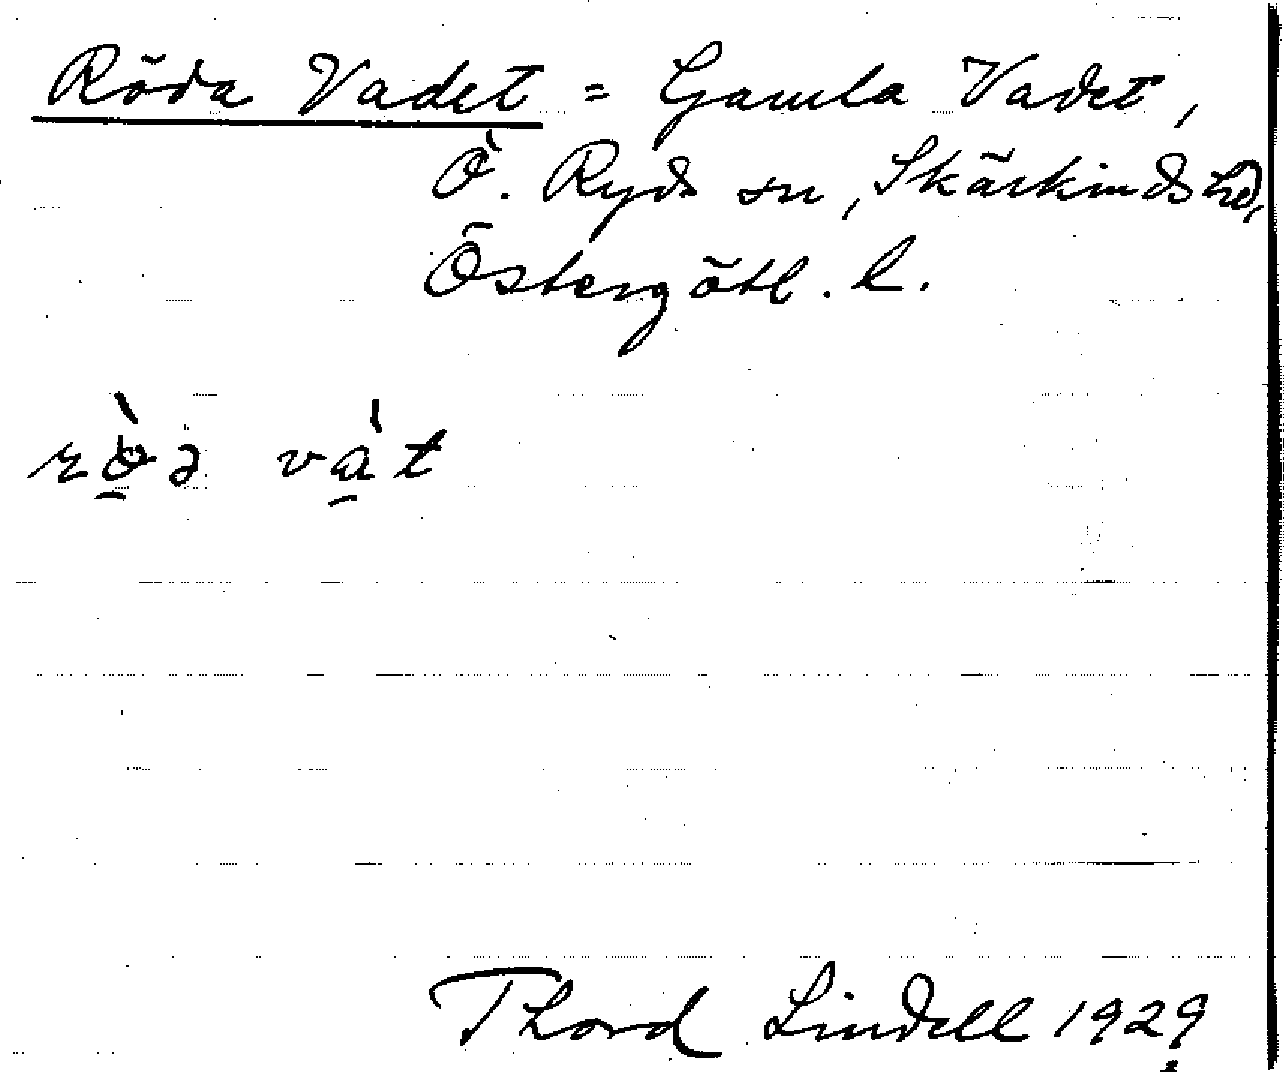 Röda Vadet = Gamla Vadet,
Ö. Ryds sn, Skärkinds hd,
Östergötl. l.
rö̱̀ə và̱t
Thord Lindell 1929